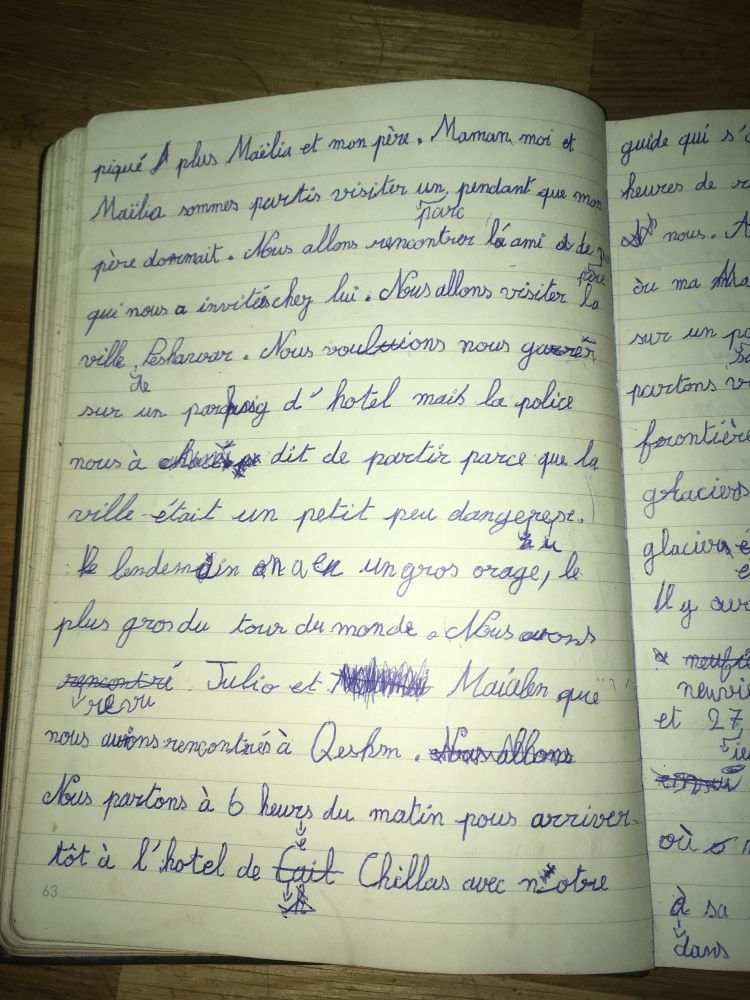 piqué plus Maëlia et mon père. Maman, moi et
Maïlia sommes partis visiter un, pendant que mon
parc
père dormait. Nous allons rencontrer l'ami de
père
qui nous a invités chez lui. Nous allons visiter la
ville, Peshawar. Nous voulions nous garer
de
sur un parking d'hotel mais la police
nous à dit de partir parce que la
ville était un petit peu dangereuse.
Le lendemain on a eu un gros orage, le
plus gros du tour du monde. Nous avons
rencontré Julio et Maialen que
revu
nous avions rencontrés à Qeshm. Nous allons
Nous partons à 6 heurs du matin pous arriver
e
tôt à l'hotel de Chillas avec notre
63
guide qui s'
heures de
nous. A
où ma
sur un
partons
frontière
glaciers
glaciers
Il y
et 27
où
à sa
dans